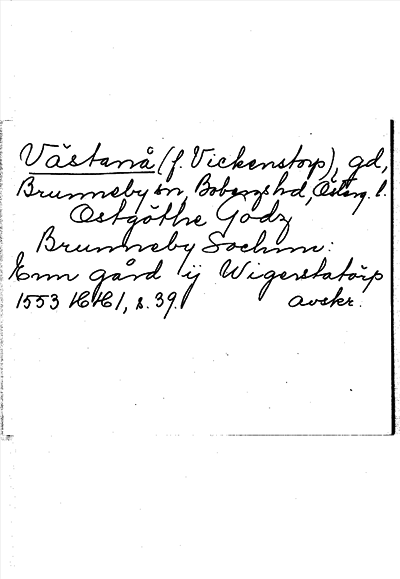 Västanå (f. Vickenstorp), gd,
Brunneby sn, Bobergs hd, Österg. l.
Ostgöthe Godz
Brunneby Sochnn:
Enn gård ij Wigerstatörp
1553 HH 1, s. 39. avskr.